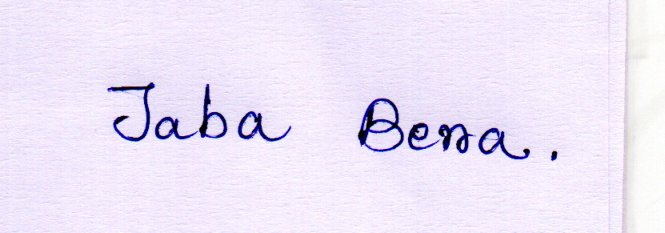 Jaba Bera.